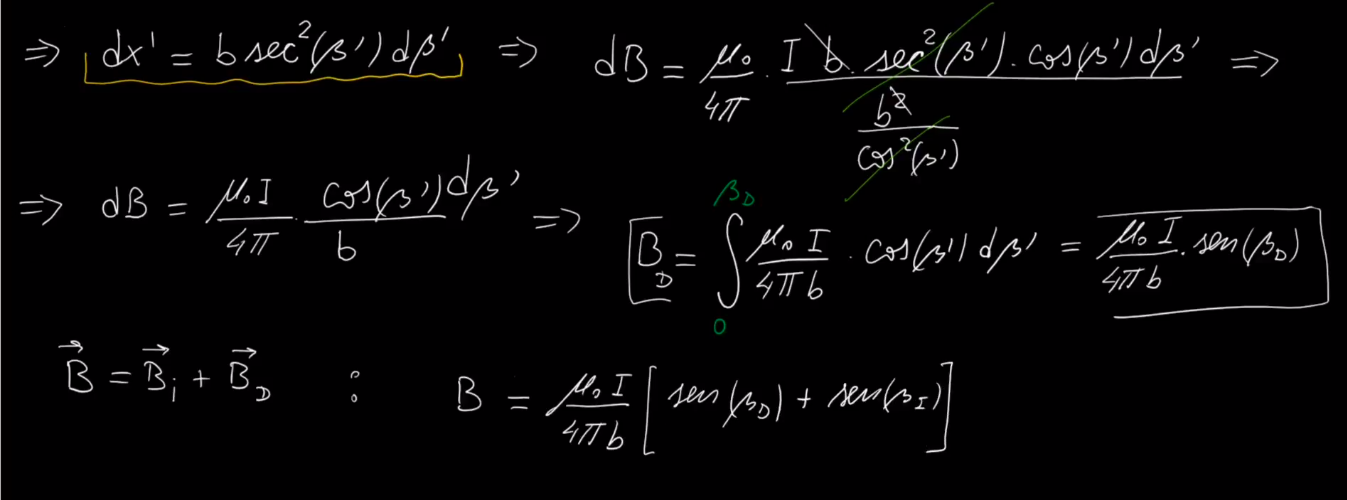 ⇒ dx' = b sec²(β') dβ' ⇒ dB = μ₀/4π · I b · sec²(β') · cos(β') dβ' / (b²/cos²(β')) ⇒
⇒ dB = μ₀I/4π · cos(β') dβ'/b ⇒ B_D = ∫₀^β_D μ₀ I/4πb · cos(β') dβ' = μ₀ I/4πb · sen(β_D)
B⃗ = B⃗ᵢ + B⃗_D : B = μ₀ I/4πb [sen(β_D) + sen(β_I)]